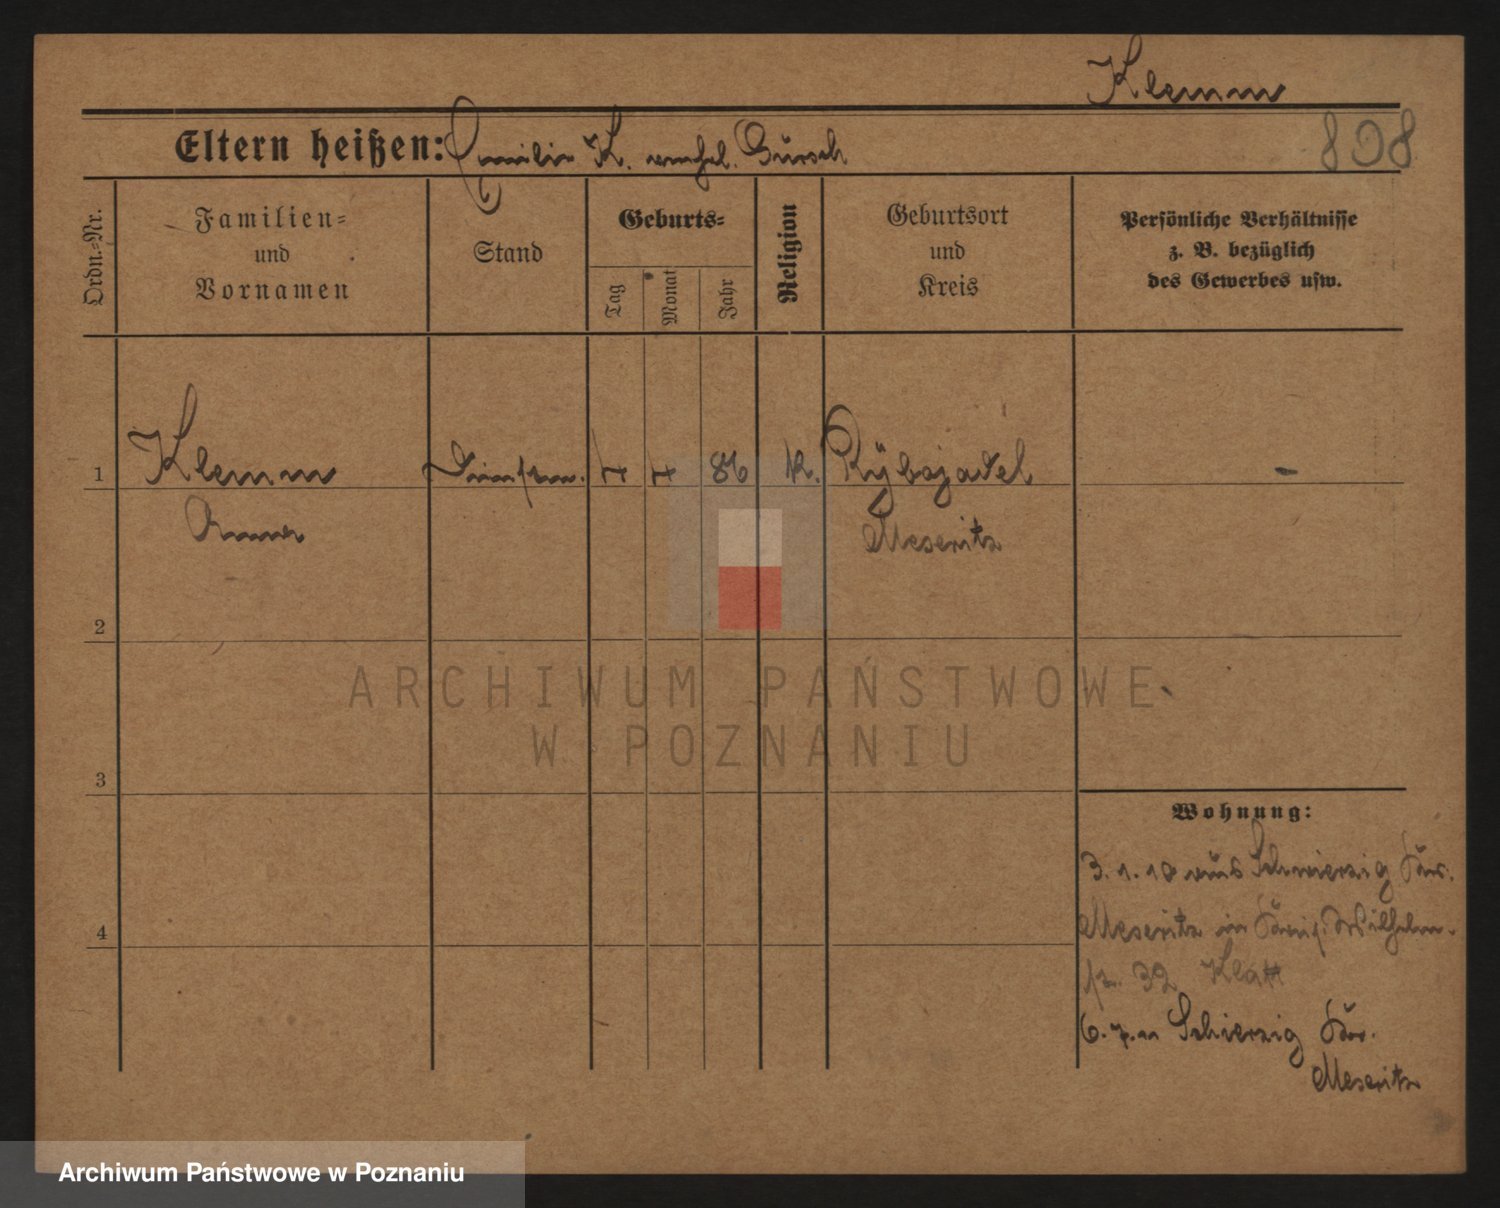 Klemm
Eltern heißen: Emilie K. verehel. Bürsch
808
Ordn.-Nr.
Familien-
und
Vornamen
Stand
Geburts-
Tag
Monat
Jahr
Religion
Geburtsort
und
Kreis
Persönliche Verhältnisse
z. B. bezüglich
des Gewerbes usw.
1
Klemm
Anna
86
k.
Rybojadel
Meseritz
-
2
ARCHIWUM PAŃSTWOWE
W POZNANIU
3
Wohnung:
3.1.10 aus Schwierzig Kr.
Meseritz in Wilhelm-
str. 32 Klatt
4
6.7.11 Schierzig Kr.
Meseritz
Archiwum Państwowe w Poznaniu